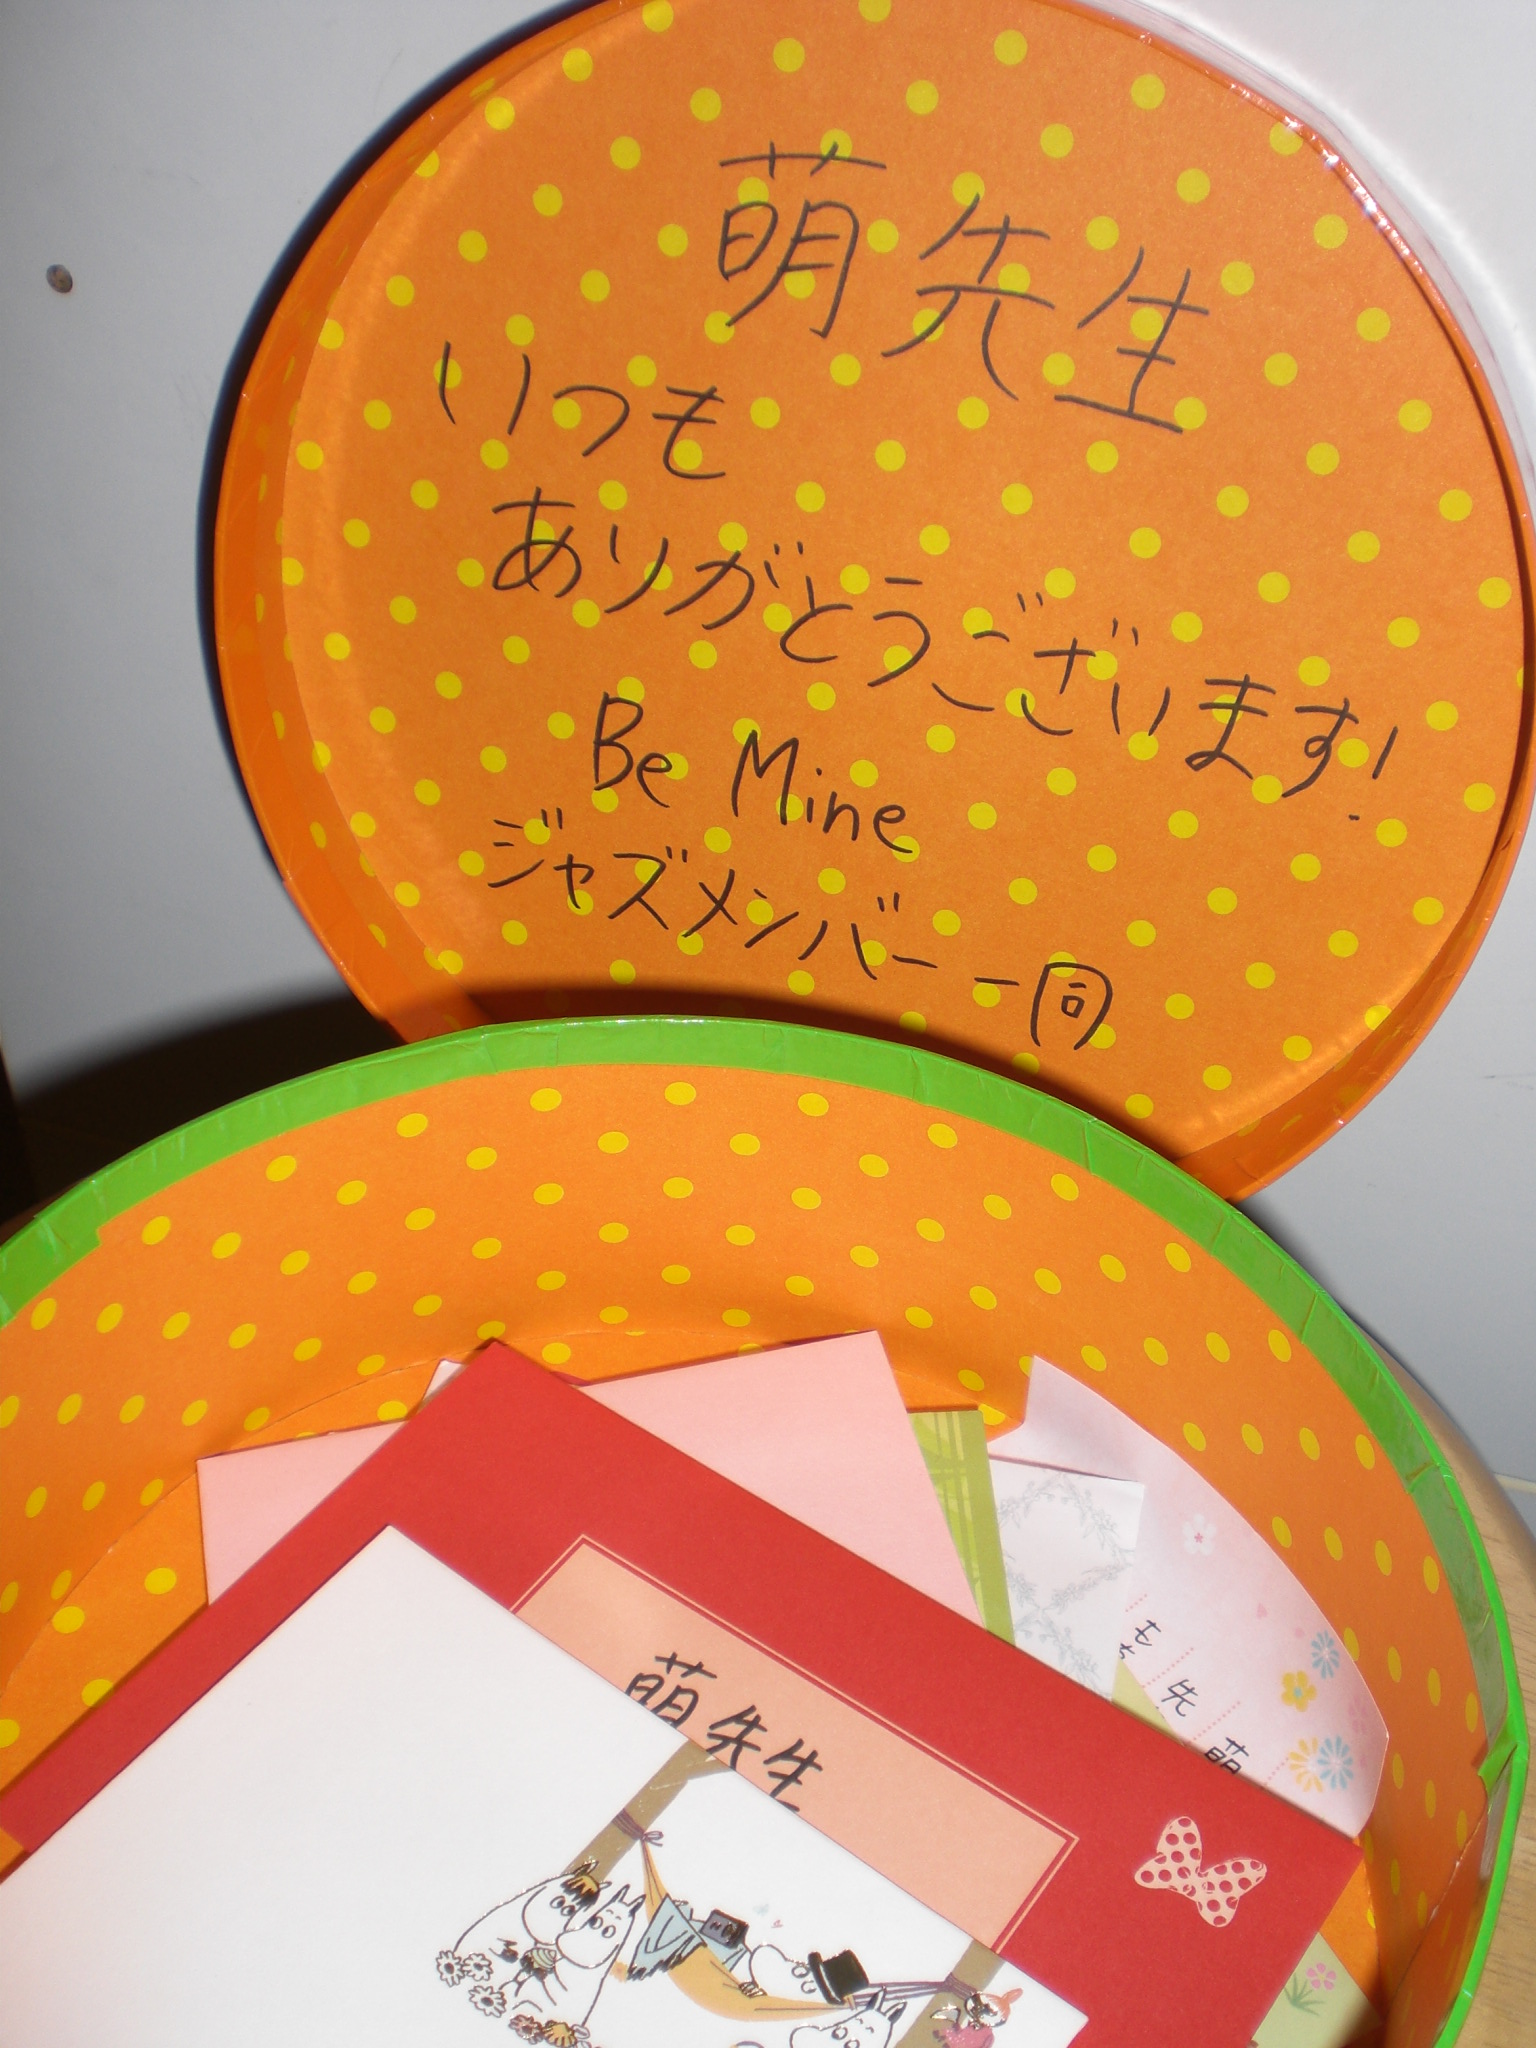 萌先生
いつも
ありがとうございます!
Be Mine
ジャズメンバー一同
萌先生
萌
先